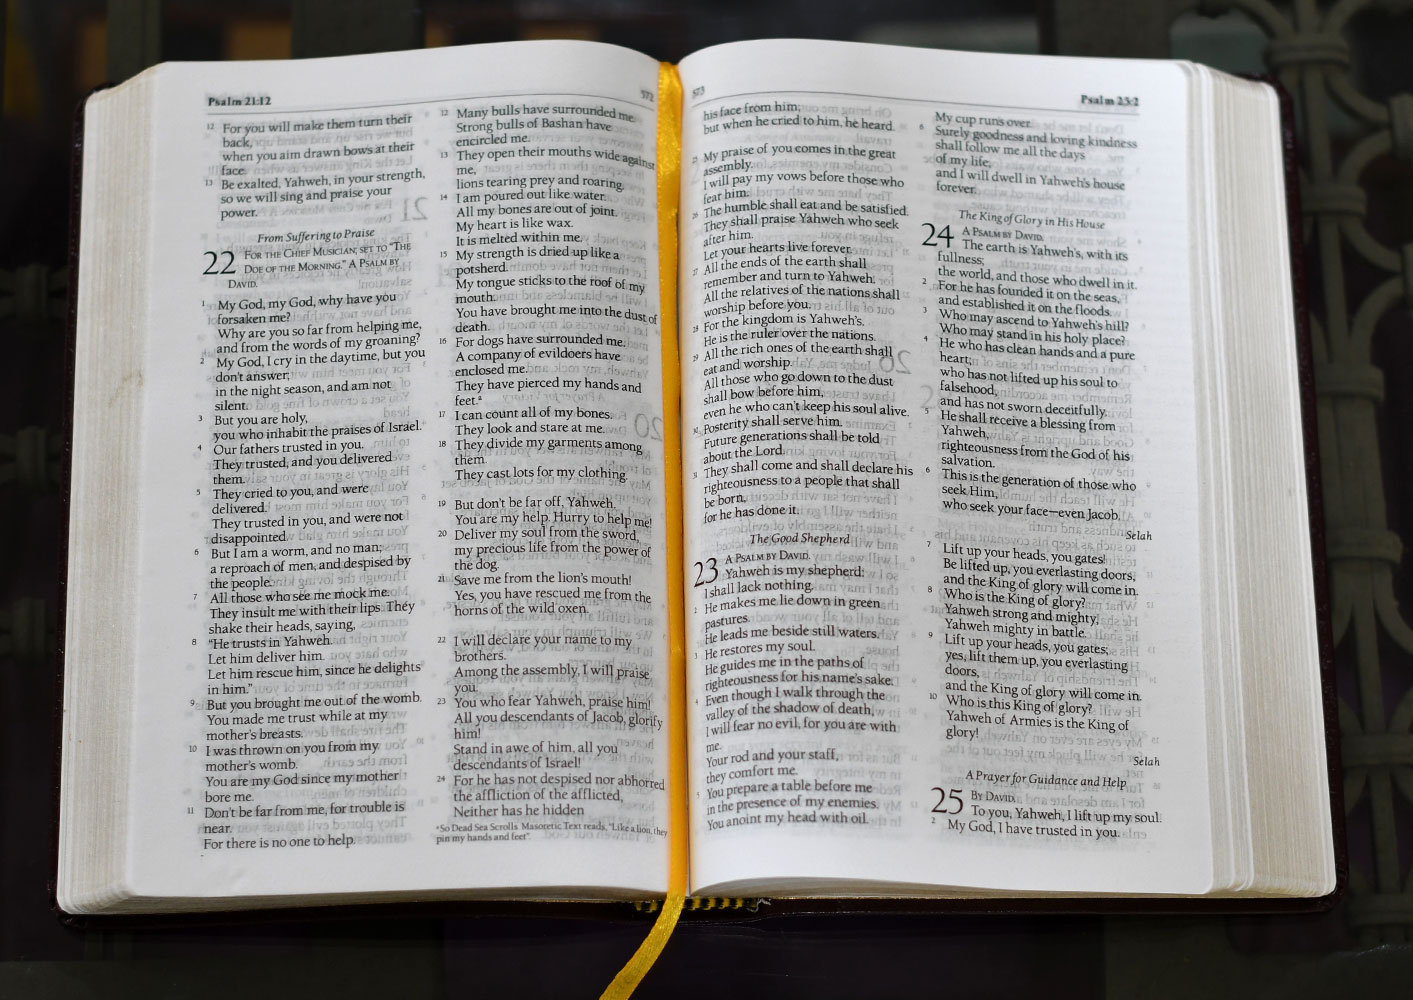 Psalm 21:12
572
12 For you will make them turn their
back,
when you aim drawn bows at their
face.
13 Be exalted, Yahweh, in your strength,
so we will sing and praise your
power.
From Suffering to Praise
22 FOR THE CHIEF MUSICIAN; SET TO "THE
DOE OF THE MORNING." A PSALM BY
DAVID.
1 My God, my God, why have you
forsaken me?
Why are you so far from helping me,
and from the words of my groaning?
2 My God, I cry in the daytime, but you
don't answer;
in the night season, and am not
silent.
3 But you are holy,
you who inhabit the praises of Israel.
4 Our fathers trusted in you.
They trusted, and you delivered
them.
5 They cried to you, and were
delivered.
They trusted in you, and were not
disappointed.
6 But I am a worm, and no man;
a reproach of men, and despised by
the people.
7 All those who see me mock me.
They insult me with their lips. They
shake their heads, saying,
8 "He trusts in Yahweh.
Let him deliver him.
Let him rescue him, since he delights
in him."
9 But you brought me out of the womb.
You made me trust while at my
mother's breasts.
10 I was thrown on you from my
mother's womb.
You are my God since my mother
bore me.
11 Don't be far from me, for trouble is
near.
For there is no one to help.
12 Many bulls have surrounded me.
Strong bulls of Bashan have
encircled me.
13 They open their mouths wide against
me,
lions tearing prey and roaring.
14 I am poured out like water.
All my bones are out of joint.
My heart is like wax.
It is melted within me.
15 My strength is dried up like a
potsherd.
My tongue sticks to the roof of my
mouth.
You have brought me into the dust of
death.
16 For dogs have surrounded me.
A company of evildoers have
enclosed me.
They have pierced my hands and
feet.a
17 I can count all of my bones.
They look and stare at me.
18 They divide my garments among
them.
They cast lots for my clothing.
19 But don't be far off, Yahweh.
You are my help. Hurry to help me!
20 Deliver my soul from the sword,
my precious life from the power of
the dog.
21 Save me from the lion's mouth!
Yes, you have rescued me from the
horns of the wild oxen.
22 I will declare your name to my
brothers.
Among the assembly, I will praise
you.
23 You who fear Yahweh, praise him!
All you descendants of Jacob, glorify
him!
Stand in awe of him, all you
descendants of Israel!
24 For he has not despised nor abhorred
the affliction of the afflicted,
Neither has he hidden
aSo Dead Sea Scrolls. Masoretic Text reads, "Like a lion, they
pin my hands and feet".
573
Psalm 25:2
his face from him;
but when he cried to him, he heard.
25 My praise of you comes in the great
assembly.
I will pay my vows before those who
fear him.
26 The humble shall eat and be satisfied.
They shall praise Yahweh who seek
after him.
Let your hearts live forever.
27 All the ends of the earth shall
remember and turn to Yahweh.
All the relatives of the nations shall
worship before you.
28 For the kingdom is Yahweh's.
He is the ruler over the nations.
29 All the rich ones of the earth shall
eat and worship.
All those who go down to the dust
shall bow before him,
even he who can't keep his soul alive.
30 Posterity shall serve him.
Future generations shall be told
about the Lord.
31 They shall come and shall declare his
righteousness to a people that shall
be born,
for he has done it.
The Good Shepherd
23 A PSALM BY DAVID.
Yahweh is my shepherd:
I shall lack nothing.
2 He makes me lie down in green
pastures.
He leads me beside still waters.
3 He restores my soul.
He guides me in the paths of
righteousness for his name's sake.
4 Even though I walk through the
valley of the shadow of death,
I will fear no evil, for you are with
me.
Your rod and your staff,
they comfort me.
5 You prepare a table before me
in the presence of my enemies.
You anoint my head with oil.
My cup runs over.
6 Surely goodness and loving kindness
shall follow me all the days
of my life,
and I will dwell in Yahweh's house
forever.
The King of Glory in His House
24 A PSALM BY DAVID.
The earth is Yahweh's, with its
fullness;
the world, and those who dwell in it.
2 For he has founded it on the seas,
and established it on the floods.
3 Who may ascend to Yahweh's hill?
Who may stand in his holy place?
4 He who has clean hands and a pure
heart;
who has not lifted up his soul to
falsehood,
and has not sworn deceitfully.
5 He shall receive a blessing from
Yahweh,
righteousness from the God of his
salvation.
6 This is the generation of those who
seek Him,
who seek your face—even Jacob.
Selah
7 Lift up your heads, you gates!
Be lifted up, you everlasting doors,
and the King of glory will come in.
8 Who is the King of glory?
Yahweh strong and mighty,
Yahweh mighty in battle.
9 Lift up your heads, you gates;
yes, lift them up, you everlasting
doors,
and the King of glory will come in.
10 Who is this King of glory?
Yahweh of Armies is the King of
glory!
Selah
A Prayer for Guidance and Help
25 BY DAVID.
To you, Yahweh, I lift up my soul.
2 My God, I have trusted in you.